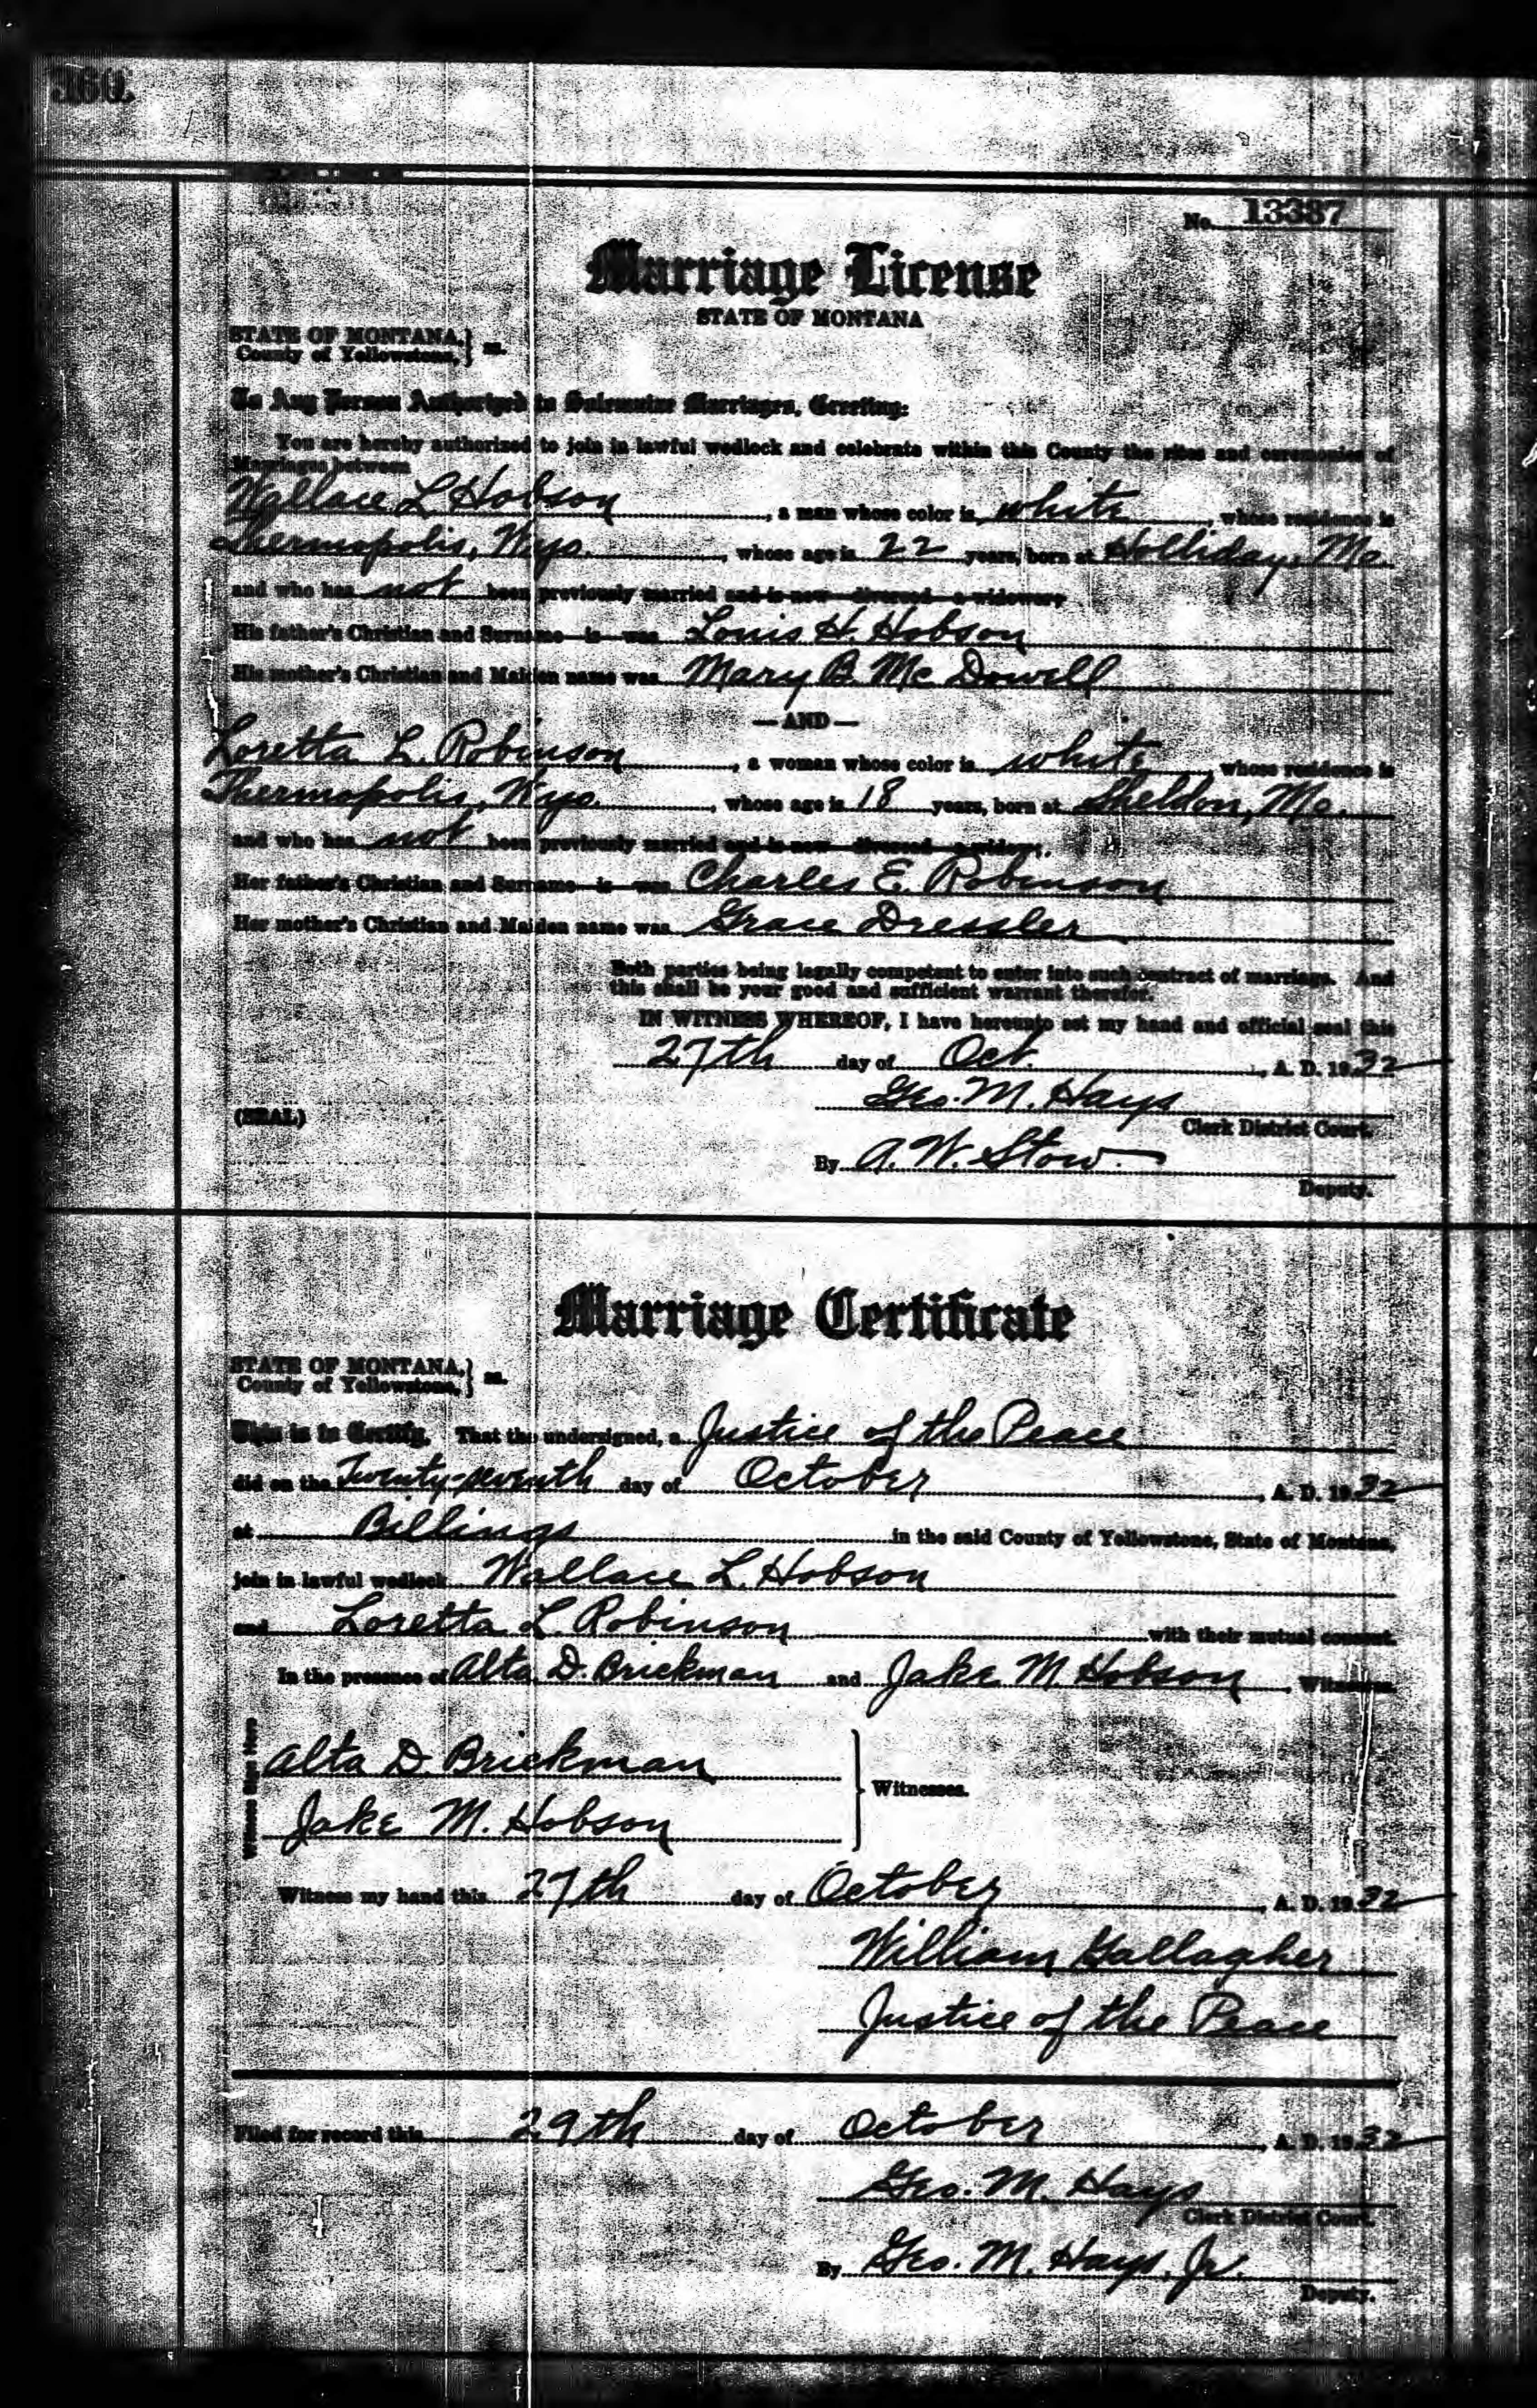 360
No. 13387
Marriage License
STATE OF MONTANA
STATE OF MONTANA, } ss.
County of Yellowstone,
To Any Person Authorized to Solemnize Marriages, Greeting:
You are hereby authorized to join in lawful wedlock and celebrate within this County the rites and ceremonies of
Marriages between
Wallace L Hobson, a man whose color is white, whose residence is
Thermopolis, Wyo., whose age is 22 years, born at Holliday, Mo.
and who has not been previously married and is now divorced a widower;
His father's Christian and Surname is was Louis H. Hobson
His mother's Christian and Maiden name was Mary B. Mc Dowell
— AND —
Loretta L. Robinson, a woman whose color is white, whose residence is
Thermopolis, Wyo., whose age is 18 years, born at Sheldon, Mo.
and who has not been previously married and is now divorced a widow;
Her father's Christian and Surname is was Charles E. Robinson
Her mother's Christian and Maiden name was Grace Dressler
Both parties being legally competent to enter into such contract of marriage. And
this shall be your good and sufficient warrant therefor.
IN WITNESS WHEREOF, I have hereunto set my hand and official seal this
27th day of Oct., A. D. 1932
Geo. M. Hays
(SEAL) Clerk District Court.
By A. W. Stow.
Deputy.
Marriage Certificate
STATE OF MONTANA, } ss.
County of Yellowstone,
This is to Certify, That the undersigned, a Justice of the Peace
did on the Twenty-seventh day of October, A. D. 1932
at Billings in the said County of Yellowstone, State of Montana,
join in lawful wedlock Wallace L. Hobson
and Loretta L. Robinson with their mutual consent.
In the presence of Alta D. Brickman and Jake M. Hobson, Witnesses.
Witness Sign Here
Alta D. Brickman
Witnesses.
Jake M. Hobson
Witness my hand this 27th day of October, A. D. 1932
William Gallagher
Justice of the Peace
Filed for record this 29th day of October, A. D. 1932
Geo. M. Hays
Clerk District Court.
By Geo. M. Hays, Jr.
Deputy.